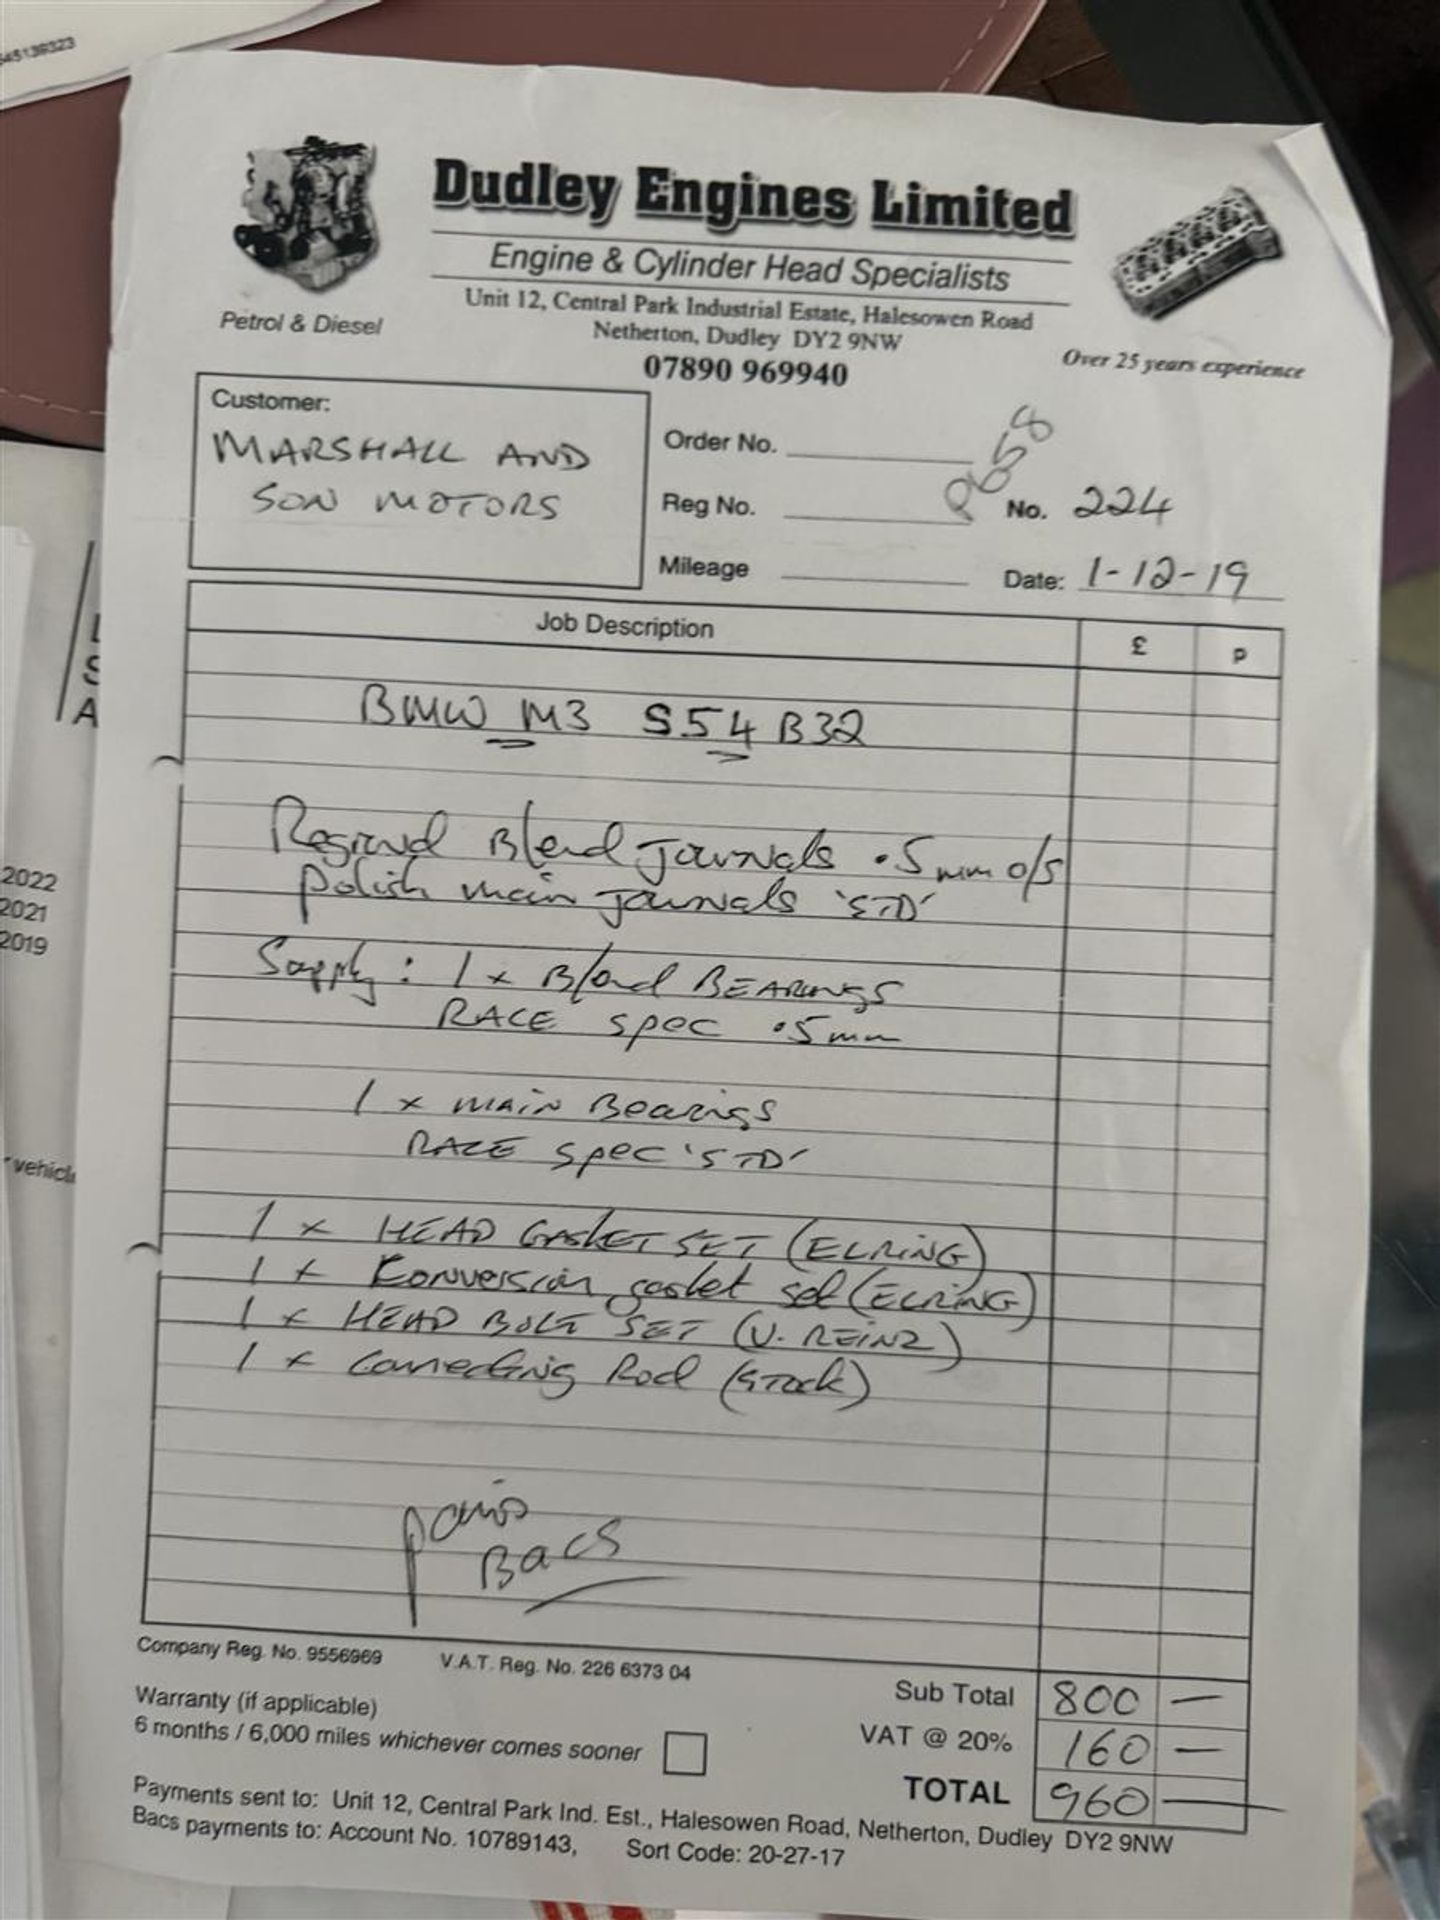 45139323
Dudley Engines Limited
Engine & Cylinder Head Specialists
Unit 12, Central Park Industrial Estate, Halesowen Road
Netherton, Dudley DY2 9NW
07890 969940
Petrol & Diesel
Over 25 years experience
Customer:
MARSHALL AND
SON MOTORS
Order No.
Reg No.
No. 224
Mileage
Date: 1-12-19
Job Description £ p
BMW M3 S54B32
Regrind B/end Journals .5mm o/s
polish main journals 'STD'
Supply: 1 x B/end BEARINGS
RACE spec .5mm
1 x MAIN Bearings
RACE spec 'STD'
1 x HEAD GASKET SET (ELRING)
1 x Konversion gasket set (ELRING)
1 x HEAD BOLT SET (V. REINZ)
1 x Connecting Rod (STOCK)
paid
BACS
Company Reg. No. 9556969 V.A.T. Reg. No. 226 6373 04
Warranty (if applicable)
6 months / 6,000 miles whichever comes sooner
Sub Total 800 —
VAT @ 20% 160 —
TOTAL 960 —
Payments sent to: Unit 12, Central Park Ind. Est., Halesowen Road, Netherton, Dudley DY2 9NW
Bacs payments to: Account No. 10789143, Sort Code: 20-27-17
L
S
A
2022
2021
2019